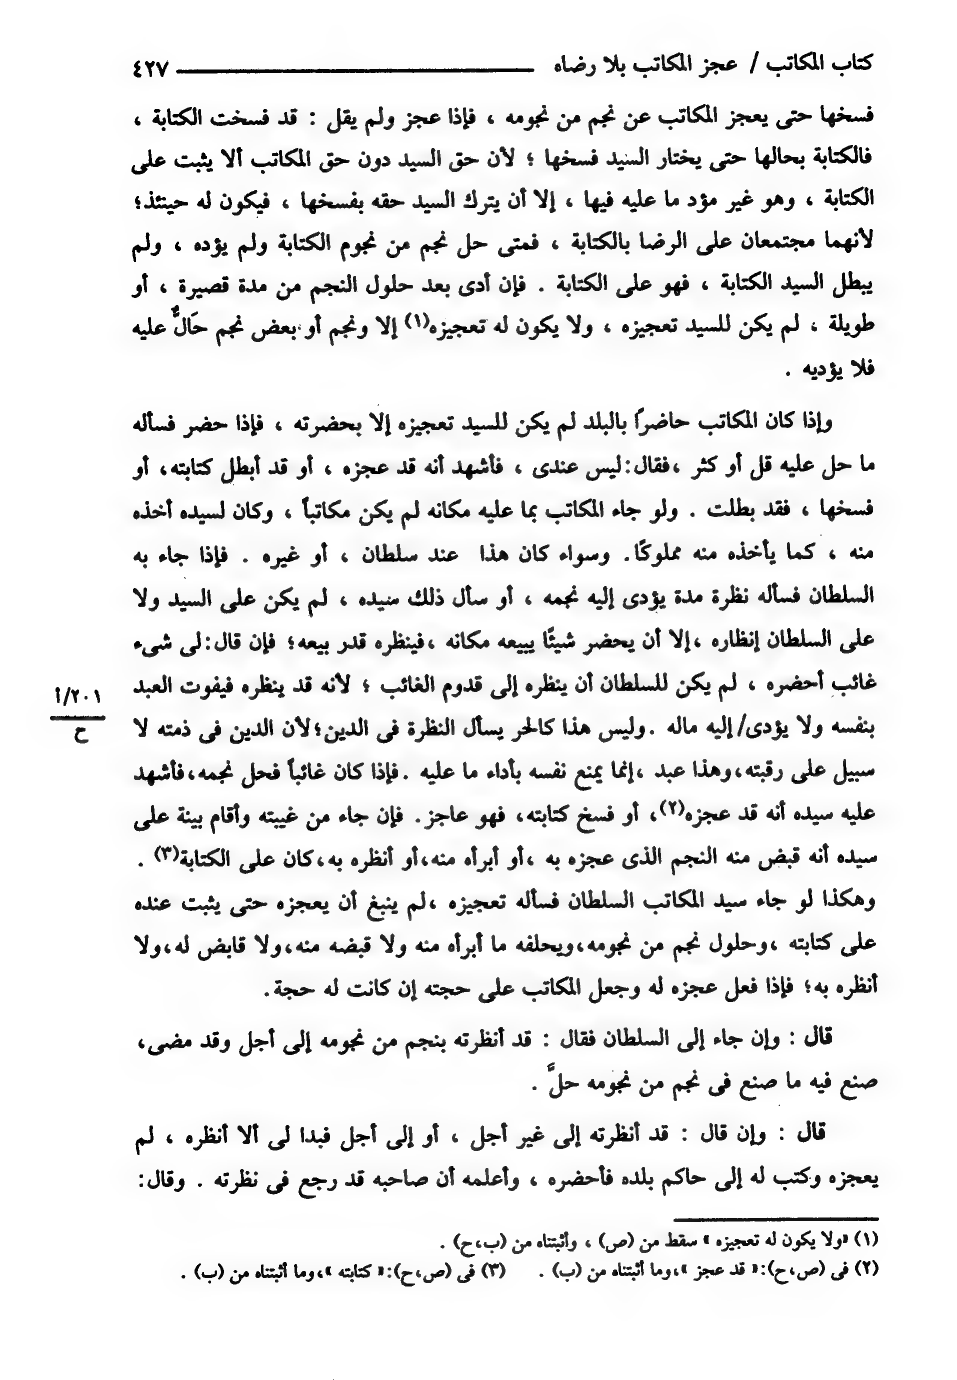 كتاب المكاتب / عجز المكاتب بلا رضاه ٤٢٧
فسخها حتى يعجز المكاتب عن نجم من نجومه ، فإذا عجز ولم يقل : قد فسخت الكتابة ،
فالكتابة بحالها حتى يختار السيد فسخها ؛ لأن حق السيد دون حق المكاتب ألا يثبت على
الكتابة ، وهو غير مؤد ما عليه فيها ، إلا أن يترك السيد حقه بفسخها ، فيكون له حينئذ؛
لأنهما مجتمعان على الرضا بالكتابة ، فمتى حل نجم من نجوم الكتابة ولم يؤده ، ولم
يبطل السيد الكتابة ، فهو على الكتابة . فإن أدى بعد حلول النجم من مدة قصيرة ، أو
طويلة ، لم يكن للسيد تعجيزه ، ولا يكون له تعجيزه(١) إلا ونجم أو بعض نجم حَالٌّ عليه
فلا يؤديه .
وإذا كان المكاتب حاضرًا بالبلد لم يكن للسيد تعجيزه إلا بحضرته ، فإذا حضر فسأله
ما حل عليه قل أو كثر ،فقال:ليس عندى ، فأشهد أنه قد عجزه ، أو قد أبطل كتابته، أو
فسخها ، فقد بطلت . ولو جاء المكاتب بما عليه مكانه لم يكن مكاتباً ، وكان لسيده أخذه
منه ، كما يأخذه منه مملوكًا. وسواء كان هذا عند سلطان ، أو غيره . فإذا جاء به
السلطان فسأله نظرة مدة يؤدى إليه نجمه ، أو سأل ذلك سيده ، لم يكن على السيد ولا
على السلطان إنظاره ،إلا أن يحضر شيئًا يبيعه مكانه ،فينظره قدر بيعه؛ فإن قال:لى شىء
غائب أحضره ، لم يكن للسلطان أن ينظره إلى قدوم الغائب ؛ لأنه قد ينظره فيفوت العبد
بنفسه ولا يؤدى/ إليه ماله .وليس هذا كالحر يسأل النظرة فى الدين؛لأن الدين فى ذمته لا
٢٠١/أ
ح
سبيل على رقبته،وهذا عبد ،إنما يمنع نفسه بأداء ما عليه .فإذا كان غائباً فحل نجمه،فأشهد
عليه سيده أنه قد عجزه(٢)، أو فسخ كتابته، فهو عاجز. فإن جاء من غيبته وأقام بينة على
سيده أنه قبض منه النجم الذى عجزه به ،أو أبرأه منه،أو أنظره به،كان على الكتابة(٣) .
وهكذا لو جاء سيد المكاتب السلطان فسأله تعجيزه ،لم ينبغ أن يعجزه حتى يثبت عنده
على كتابته ،وحلول نجم من نجومه،ويحلفه ما أبرأه منه ولا قبضه منه،ولا قابض له،ولا
أنظره به؛ فإذا فعل عجزه له وجعل المكاتب على حجته إن كانت له حجة.
قال : وإن جاء إلى السلطان فقال : قد أنظرته بنجم من نجومه إلى أجل وقد مضى،
صنع فيه ما صنع فى نجم من نجومه حلَّ .
قال : وإن قال : قد أنظرته إلى غير أجل ، أو إلى أجل فبدا لى ألا أنظره ، لم
يعجزه وكتب له إلى حاكم بلده فأحضره ، وأعلمه أن صاحبه قد رجع فى نظرته . وقال:
(١) «ولا يكون له تعجيزه » سقط من (ص) ، وأثبتناه من (ب،ح) .
(٢) فى (ص،ح):« قد عجز »،وما أثبتناه من (ب) . (٣) فى (ص،ح):« كتابته »،وما أثبتناه من (ب) .